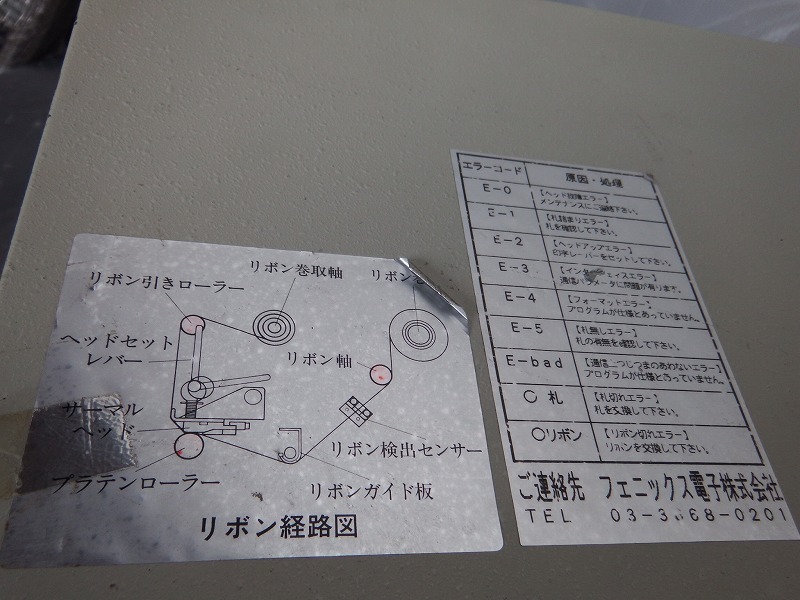 リボン巻取軸
リボン
リボン引きローラー
ヘッドセット
レバー
リボン軸
サーマル
ヘッド
リボン検出センサー
プラテンローラー
リボンガイド板
リボン経路図
エラーコード 原因・処理
E-0 【ヘッド故障エラー】
メンテナンスにご連絡下さい。
E-1 【札詰まりエラー】
札を確認して下さい。
E-2 【ヘッドアップエラー】
印字レーバーをセットして下さい。
E-3 【インターフェイスエラー】
通信パラメータに問題が有ります。
E-4 【フォーマットエラー】
プログラムが仕様とあっていません。
E-5 【札無しエラー】
札の有無を確認して下さい。
E-bad 【通信上つじつまのあわないエラー】
プログラムが仕様とあっていません。
○ 札 【札切れエラー】
札を交換して下さい。
○リボン 【リボン切れエラー】
リボンを交換して下さい。
ご連絡先 フェニックス電子株式会社
TEL 03-3 68-0201